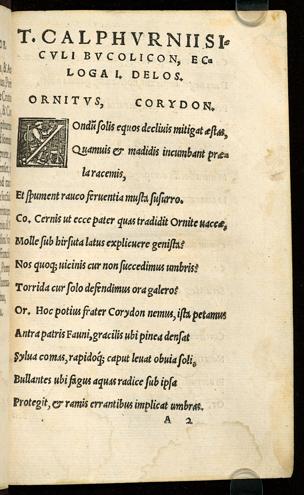 T. CALPHVRNII SI-
CVLI BVCOLICON, EC-
LOGA I. DELOS.
ORNITVS, CORYDON.
NOndũ solis equos decliuis mitigat æstas,
Quamuis & madidis incumbant præ-
la racemis,
Et spument rauco feruentia musta susurro.
Co. Cernis ut ecce pater quas tradidit Ornite uaccæ,
Molle sub hirsuta latus explicuere genista?
Nos quoq; uicinis cur non succedimus umbris?
Torrida cur solo defendimus ora galero?
Or. Hoc potius frater Corydon nemus, ista petamus
Antra patris Fauni, gracilis ubi pinea densat
Sylua comas, rapidoq; caput leuat obuia soli,
Bullantes ubi fagus aquas radice sub ipsa
Protegit, & ramis errantibus implicat umbras.
A 2